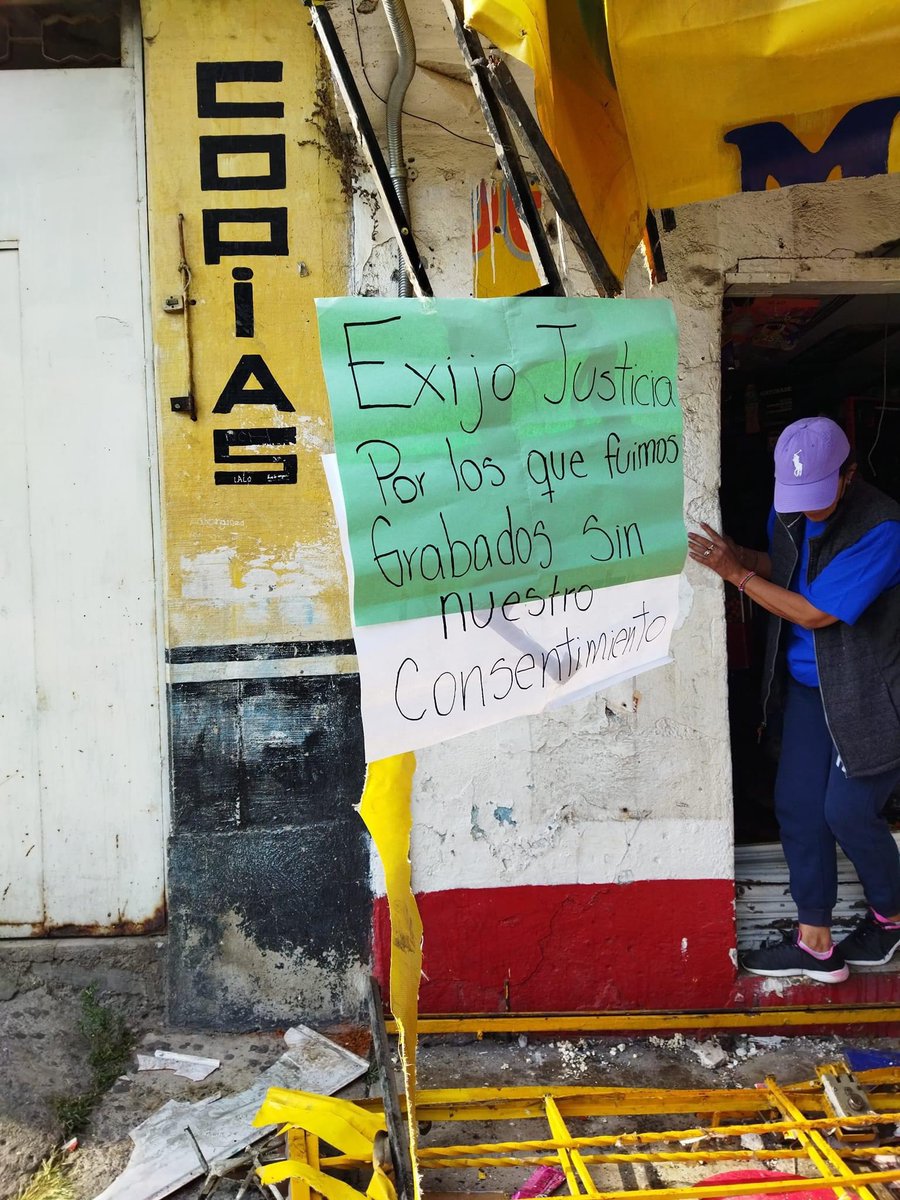 COPIAS
LALO
Exijo Justicia
Por los que fuimos
Grabados sin
nuestro
Consentimiento
M